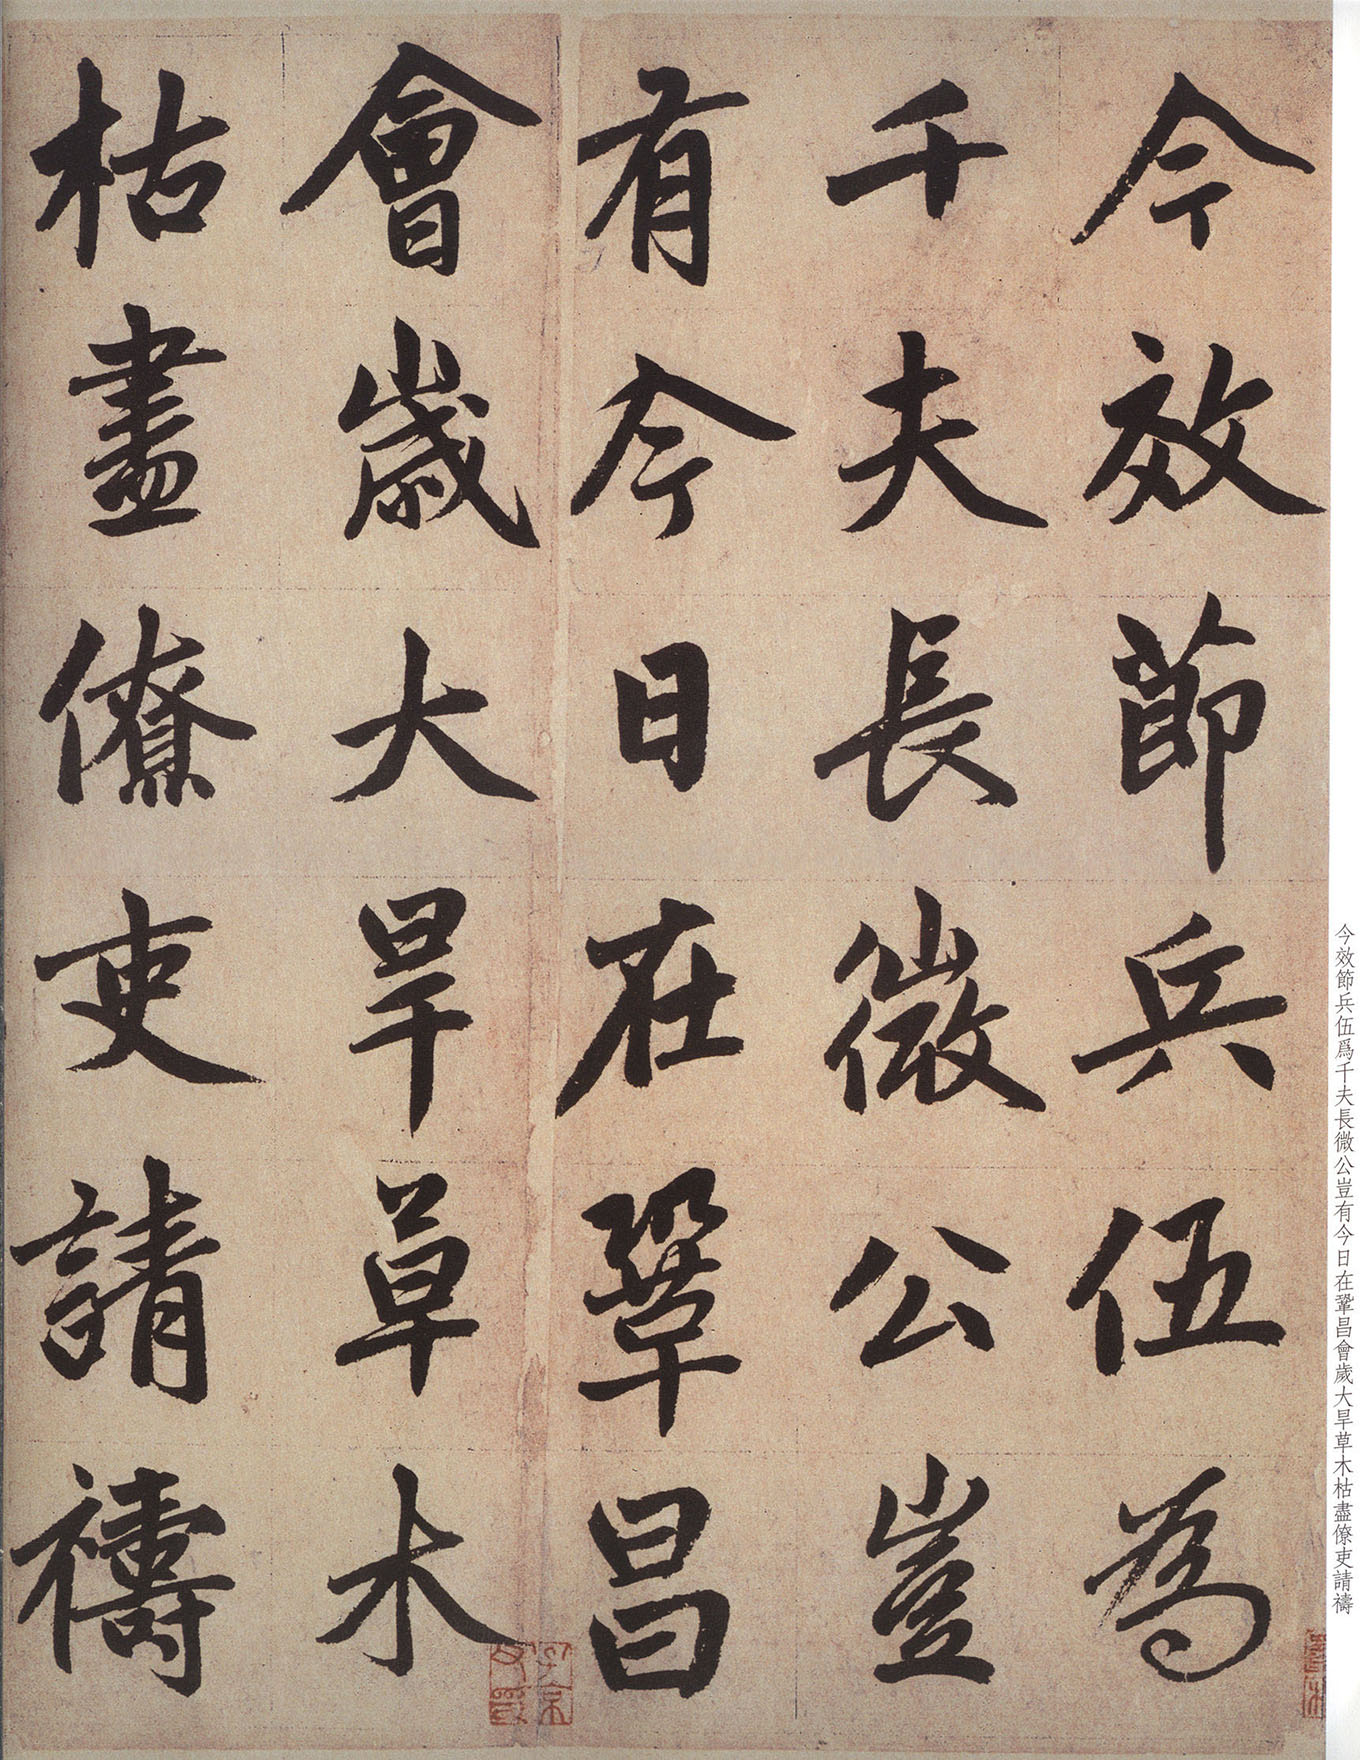 今效節兵伍為
千夫長微公豈
有今日在鞏昌
會歲大旱草木
枯盡僚吏請禱
今效節兵伍爲千夫長微公豈有今日在鞏昌會歲大旱草木枯盡僚吏請禱